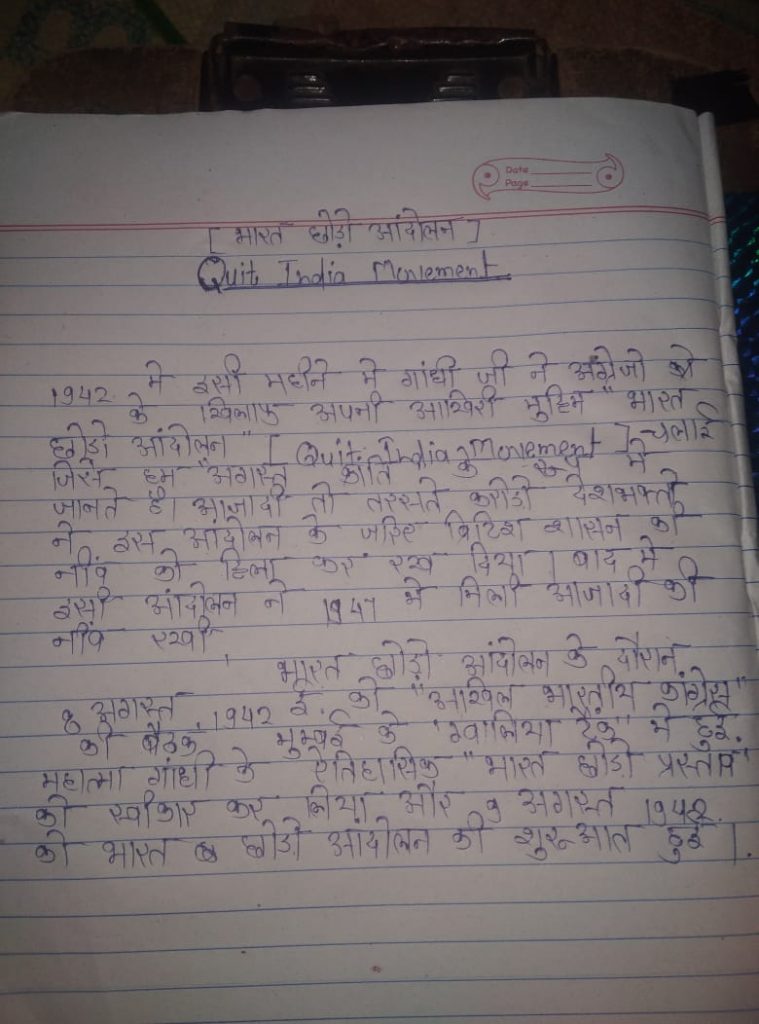 Date
Page
[ भारत छोड़ो आंदोलन ]
Quit India Movement
1942 में इसी महीने में गांधी जी ने अंग्रेजो
के खिलाफ अपनी आखिरी मुहिम "भारत
छोड़ो आंदोलन" [ Quit India Movement ] चलाई
जिसे हम "अगस्त क्रांति के में
जानते है। आजादी तो तरसते करोडो देशभक्तो
ने इस आंदोलन के जरिए ब्रिटिश शासन की
नींव को हिला कर रख दिया । बाद में
इसी आंदोलन ने 1947 में मिली आजादी की
नींव रखी,
भारत छोड़ो आंदोलन के दौरान
8 अगस्त 1942 ई. को "अखिल भारतीय कांग्रेस"
की बैठक मुम्बई के "ग्वालिया टैंक" में हुई.
महात्मा गांधी के ऐतिहासिक "भारत छोड़ो प्रस्ताव"
को स्वीकार कर लिया और 9 अगस्त 1942
को भारत छोडो आंदोलन की शुरूआत हुई ।